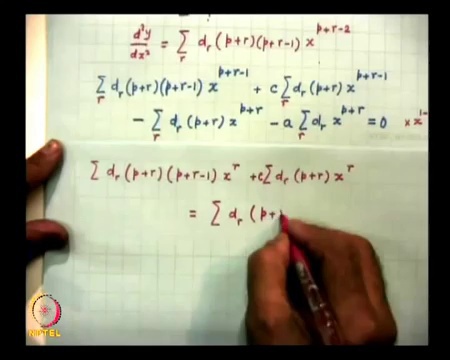 d²y/dx² = Σ_r d_r (p+r)(p+r-1) x^{p+r-2}
Σ_r d_r (p+r)(p+r-1) x^{p+r-1} + c Σ_r d_r (p+r) x^{p+r-1}
- Σ_r d_r (p+r) x^{p+r} - a Σ_r d_r x^{p+r} = 0 × x^{1-
Σ d_r (p+r)(p+r-1) x^r + c Σ d_r (p+r) x^r
= Σ d_r (p+
NPTEL